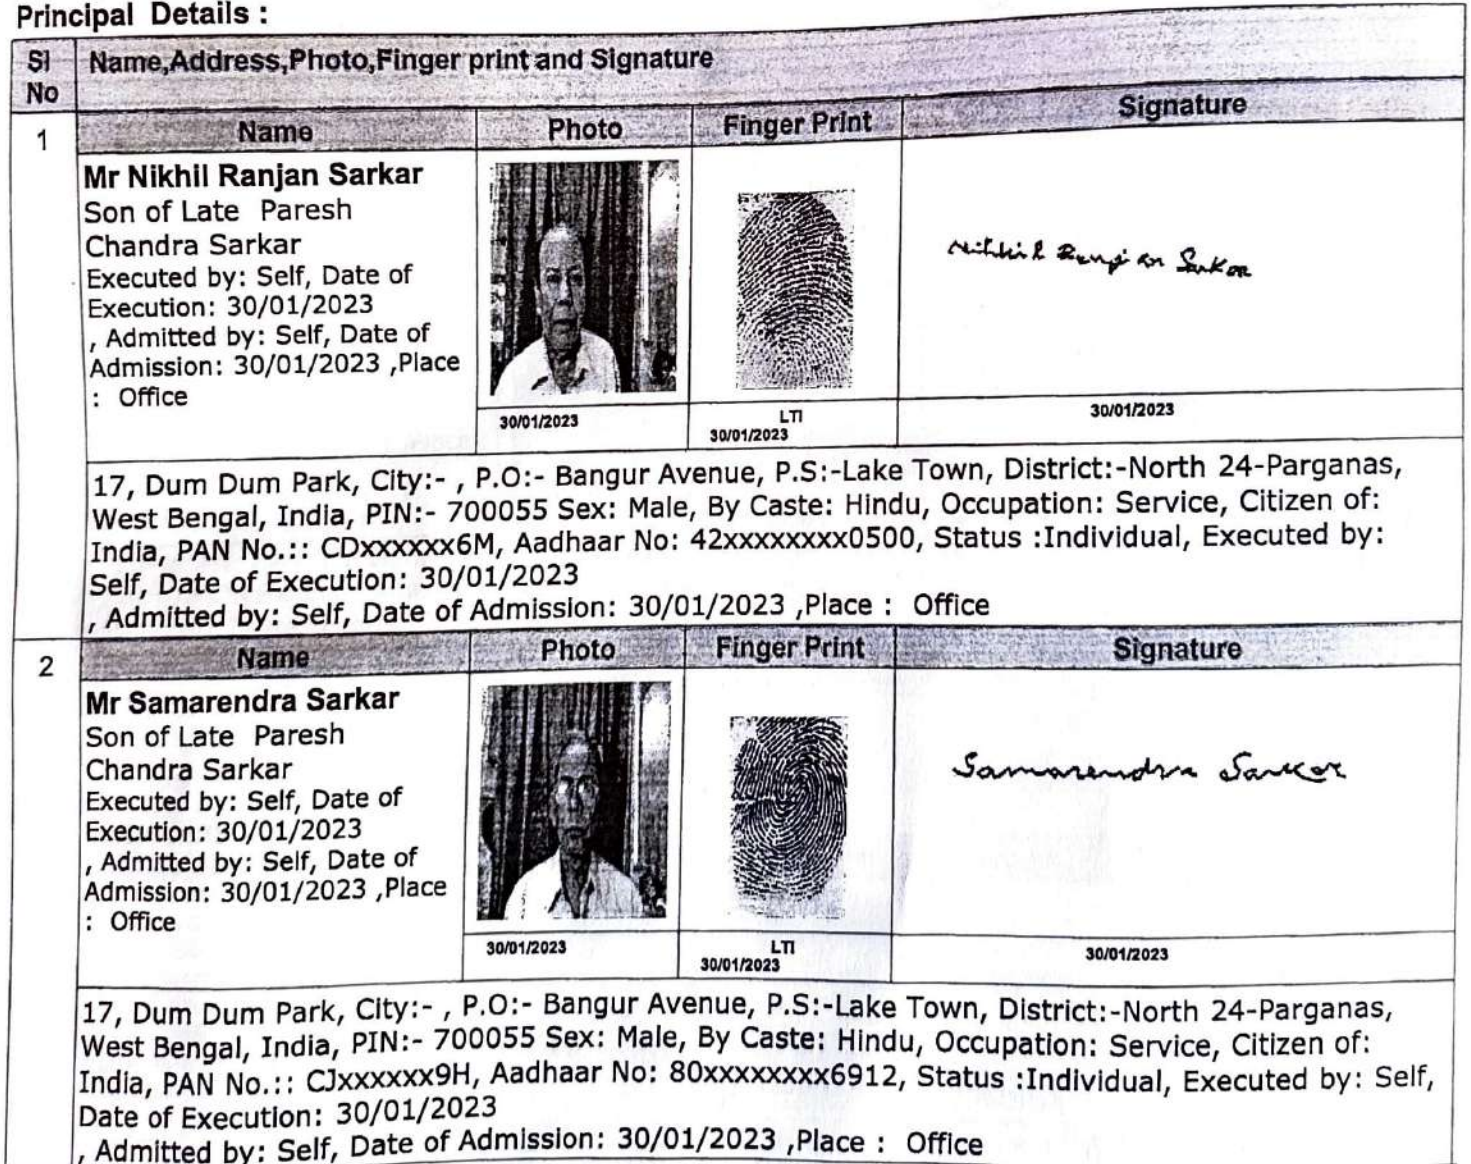 Principal Details :
Sl No
Name,Address,Photo,Finger print and Signature
1
Name
Photo
Finger Print
Signature
Mr Nikhil Ranjan Sarkar
Son of Late Paresh
Chandra Sarkar
Executed by: Self, Date of
Execution: 30/01/2023
, Admitted by: Self, Date of
Admission: 30/01/2023 ,Place
: Office
Nikhil Ranjan Sarkar
30/01/2023
LTI
30/01/2023
30/01/2023
17, Dum Dum Park, City:- , P.O:- Bangur Avenue, P.S:-Lake Town, District:-North 24-Parganas,
West Bengal, India, PIN:- 700055 Sex: Male, By Caste: Hindu, Occupation: Service, Citizen of:
India, PAN No.:: CDxxxxxx6M, Aadhaar No: 42xxxxxxxx0500, Status :Individual, Executed by:
Self, Date of Execution: 30/01/2023
, Admitted by: Self, Date of Admission: 30/01/2023 ,Place : Office
2
Name
Photo
Finger Print
Signature
Mr Samarendra Sarkar
Son of Late Paresh
Chandra Sarkar
Executed by: Self, Date of
Execution: 30/01/2023
, Admitted by: Self, Date of
Admission: 30/01/2023 ,Place
: Office
Samarendra Sarkar
30/01/2023
LTI
30/01/2023
30/01/2023
17, Dum Dum Park, City:- , P.O:- Bangur Avenue, P.S:-Lake Town, District:-North 24-Parganas,
West Bengal, India, PIN:- 700055 Sex: Male, By Caste: Hindu, Occupation: Service, Citizen of:
India, PAN No.:: CJxxxxxx9H, Aadhaar No: 80xxxxxxxx6912, Status :Individual, Executed by: Self,
Date of Execution: 30/01/2023
, Admitted by: Self, Date of Admission: 30/01/2023 ,Place : Office